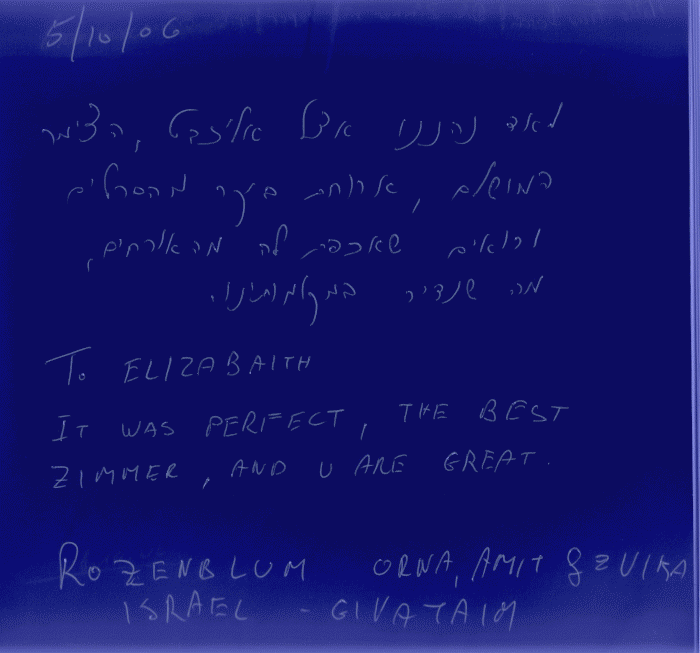 5/10/06
מאד נהננו אצל אליזבט, הצימר
המושלם, ארוחת בוקר מהסרטים
ורואים שאכפת לה מהאורחים,
מה שנדיר במקומותינו.
To ELIZABAITH
IT WAS PERFECT, THE BEST
ZIMMER, AND U ARE GREAT.
ROZENBLUM ORNA, AMIT & ZVIKA
ISRAEL - GIVATAIM